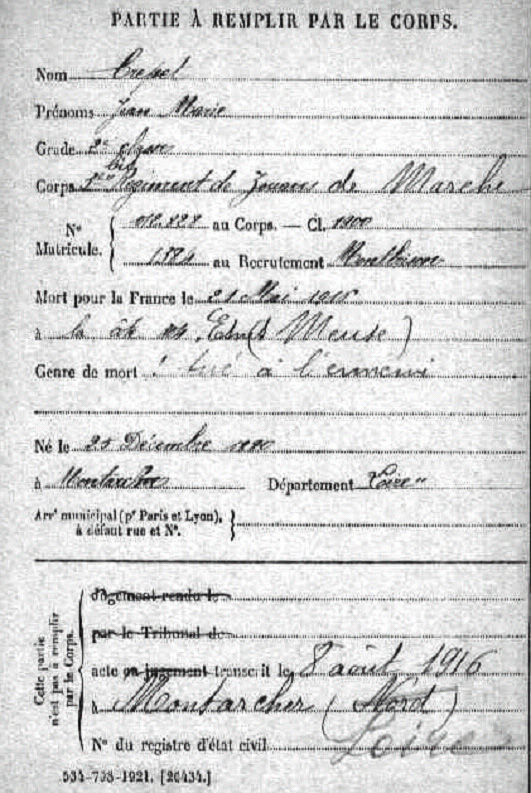 PARTIE À REMPLIR PAR LE CORPS.
Nom Crepet
Prénoms Jean Marie
Grade 2e
Corps Régiment de Zouaves de Marche
No Matricule. au Corps. — Cl. 1900
au Recrutement Montbrison
Mort pour la France le 21 Mai 1916
à la côte 304, (Meuse)
Genre de mort tué à l'ennemi
Né le 25 Décembre 1880
à Département Loire
Arrt municipal (pr Paris et Lyon), à défaut rue et No.
Cette partie n'est pas à remplir par le Corps.
Jugement rendu le
par le Tribunal de
acte ou jugement transcrit le 8 août 1916
à Montarcher (Nord)
Loire
No du registre d'état civil
534-708-1921. [26434.]